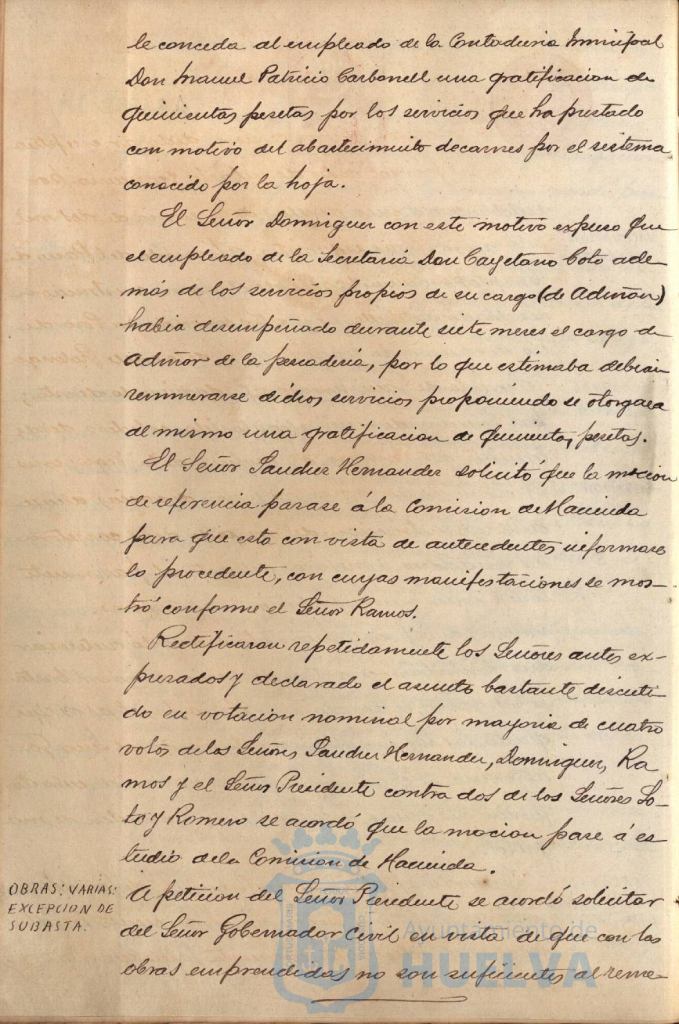 le conceda al empleado de la Contaduria Municipal
Don Manuel Patricio Carbonell una gratificacion de
quinientas pesetas por los servicios que ha prestado
con motivo del abastecimiento de carnes por el sistema
conocido por la hoja.
El Señor Dominguez con este motivo expuso que
el empleado de la Secretaria Don Cayetano Coto ade
más de los servicios propios de su cargo (de Admñon)
habia desempeñado durante siete meses el cargo de
Admñor de la pescaderia, por lo que estimaba debian
remunerarse dichos servicios proponiendo se otorgara
al mismo una gratificacion de quinientas pesetas.
El Señor Sanchez Hernandez solicitó que la mocion
de referencia pasase á la Comision de Hacienda
para que esta con vista de antecedentes informase
lo procedente, con cuyas manifestaciones se mos-
tró conforme el Señor Ramos.
Rectificaron repetidamente los Señores antes ex-
presados y declarado el asunto bastante discuti
do en votacion nominal por mayoria de cuatro
votos de los Señores Sanchez Hernandez, Dominguez, Ra
mos y el Señor Presidente contra dos de los Señores So-
to y Romero se acordó que la mocion pase á es
tudio de la Comision de Hacienda.
OBRAS: VARIAS:
EXCEPCION DE
SUBASTA.
A peticion del Señor Presidente se acordó solicitar
del Señor Gobernador Civil en vista de que con las
obras emprendidas no son suficientes al reme-
Ayuntamiento de
HUELVA